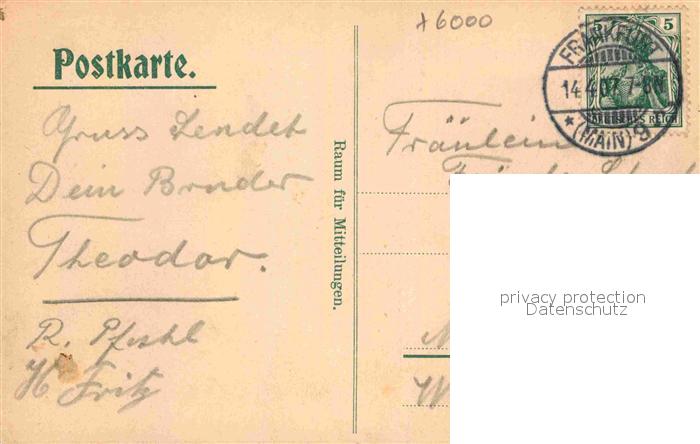 +6000
Postkarte.
Gruss sendet
Dein Bruder
Theodor.
R. Pfeohl
H Fritz
Raum für Mitteilungen.
Fräulein
5 5
DEUTSCHES REICH
FRANKFURT
14.4.07. 7-8N
* (MAIN) 9
privacy protection
Datenschutz